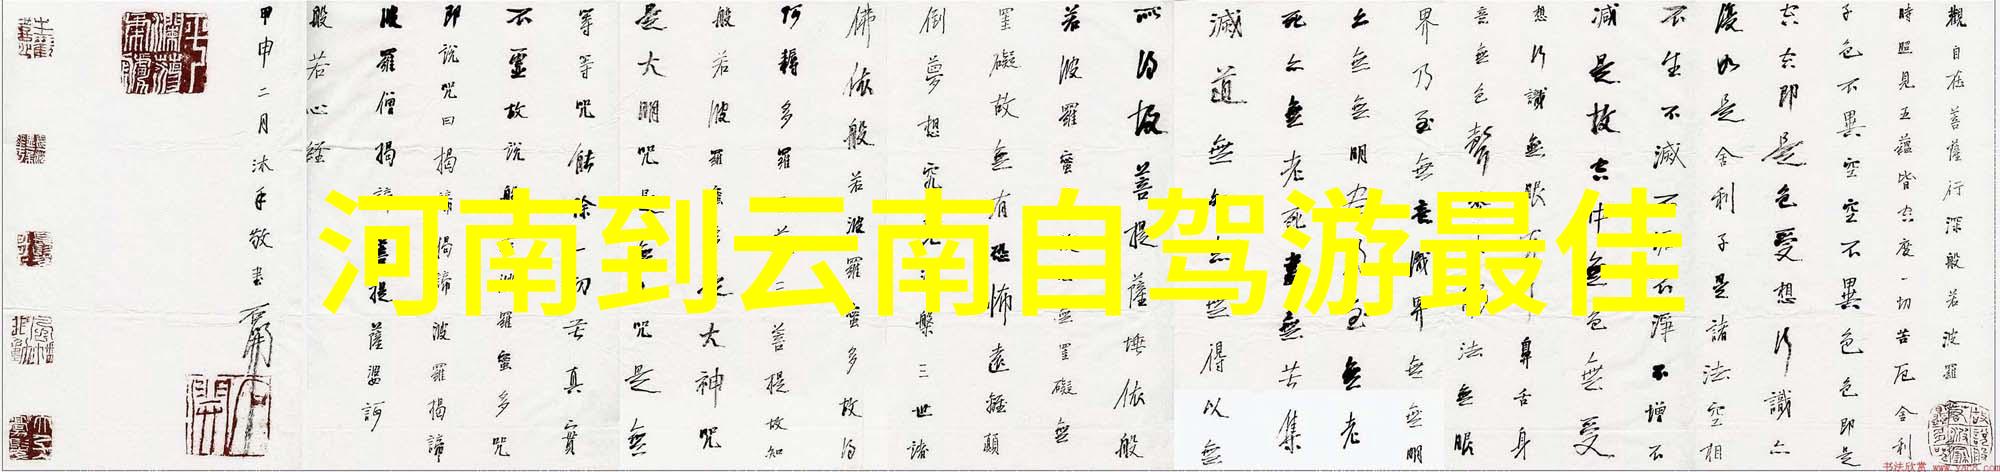 河南到云南自驾游最佳
觀自在菩薩行深般若波羅
時照見五蘊皆空度一切苦厄舍利
子色不異空空不異色色即是
空空即是色受想行識亦
復如是舍利子是諸法空相
不生不滅不垢不淨不增不
減是故空中無色無受
想行識無眼耳鼻舌身
意無色聲香法無眼
界乃至無意識界無無明
亦無無明亦乃至無老
死亦無老死盡無苦集
滅道無智亦無得以無
所得故菩提薩埵依般
若波羅蜜故無罣礙無
罣礙故無有恐怖遠離顛
倒夢想究竟槃三世諸
佛依般若波羅蜜多故得
阿耨多羅三菩提故知
般若波羅蜜多是大神咒
是大明咒是無上咒是無
等等咒能除一切苦真實
不虛故說般波羅蜜多咒
即說咒曰揭諦揭諦波羅揭諦
波羅僧揭諦菩提薩婆訶
般若心經
甲申二月沐手敬書
书法欣赏